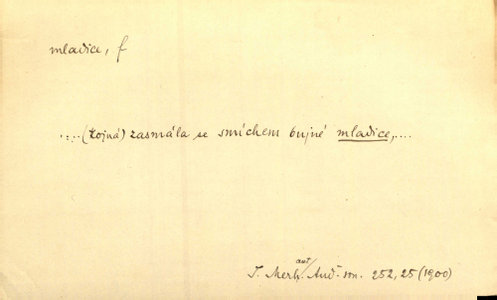 mladice, f
....(Kojná) zasmála se smíchem bujné mladice,....
J. Merh. aut/ And. sm. 252, 25 (1900)